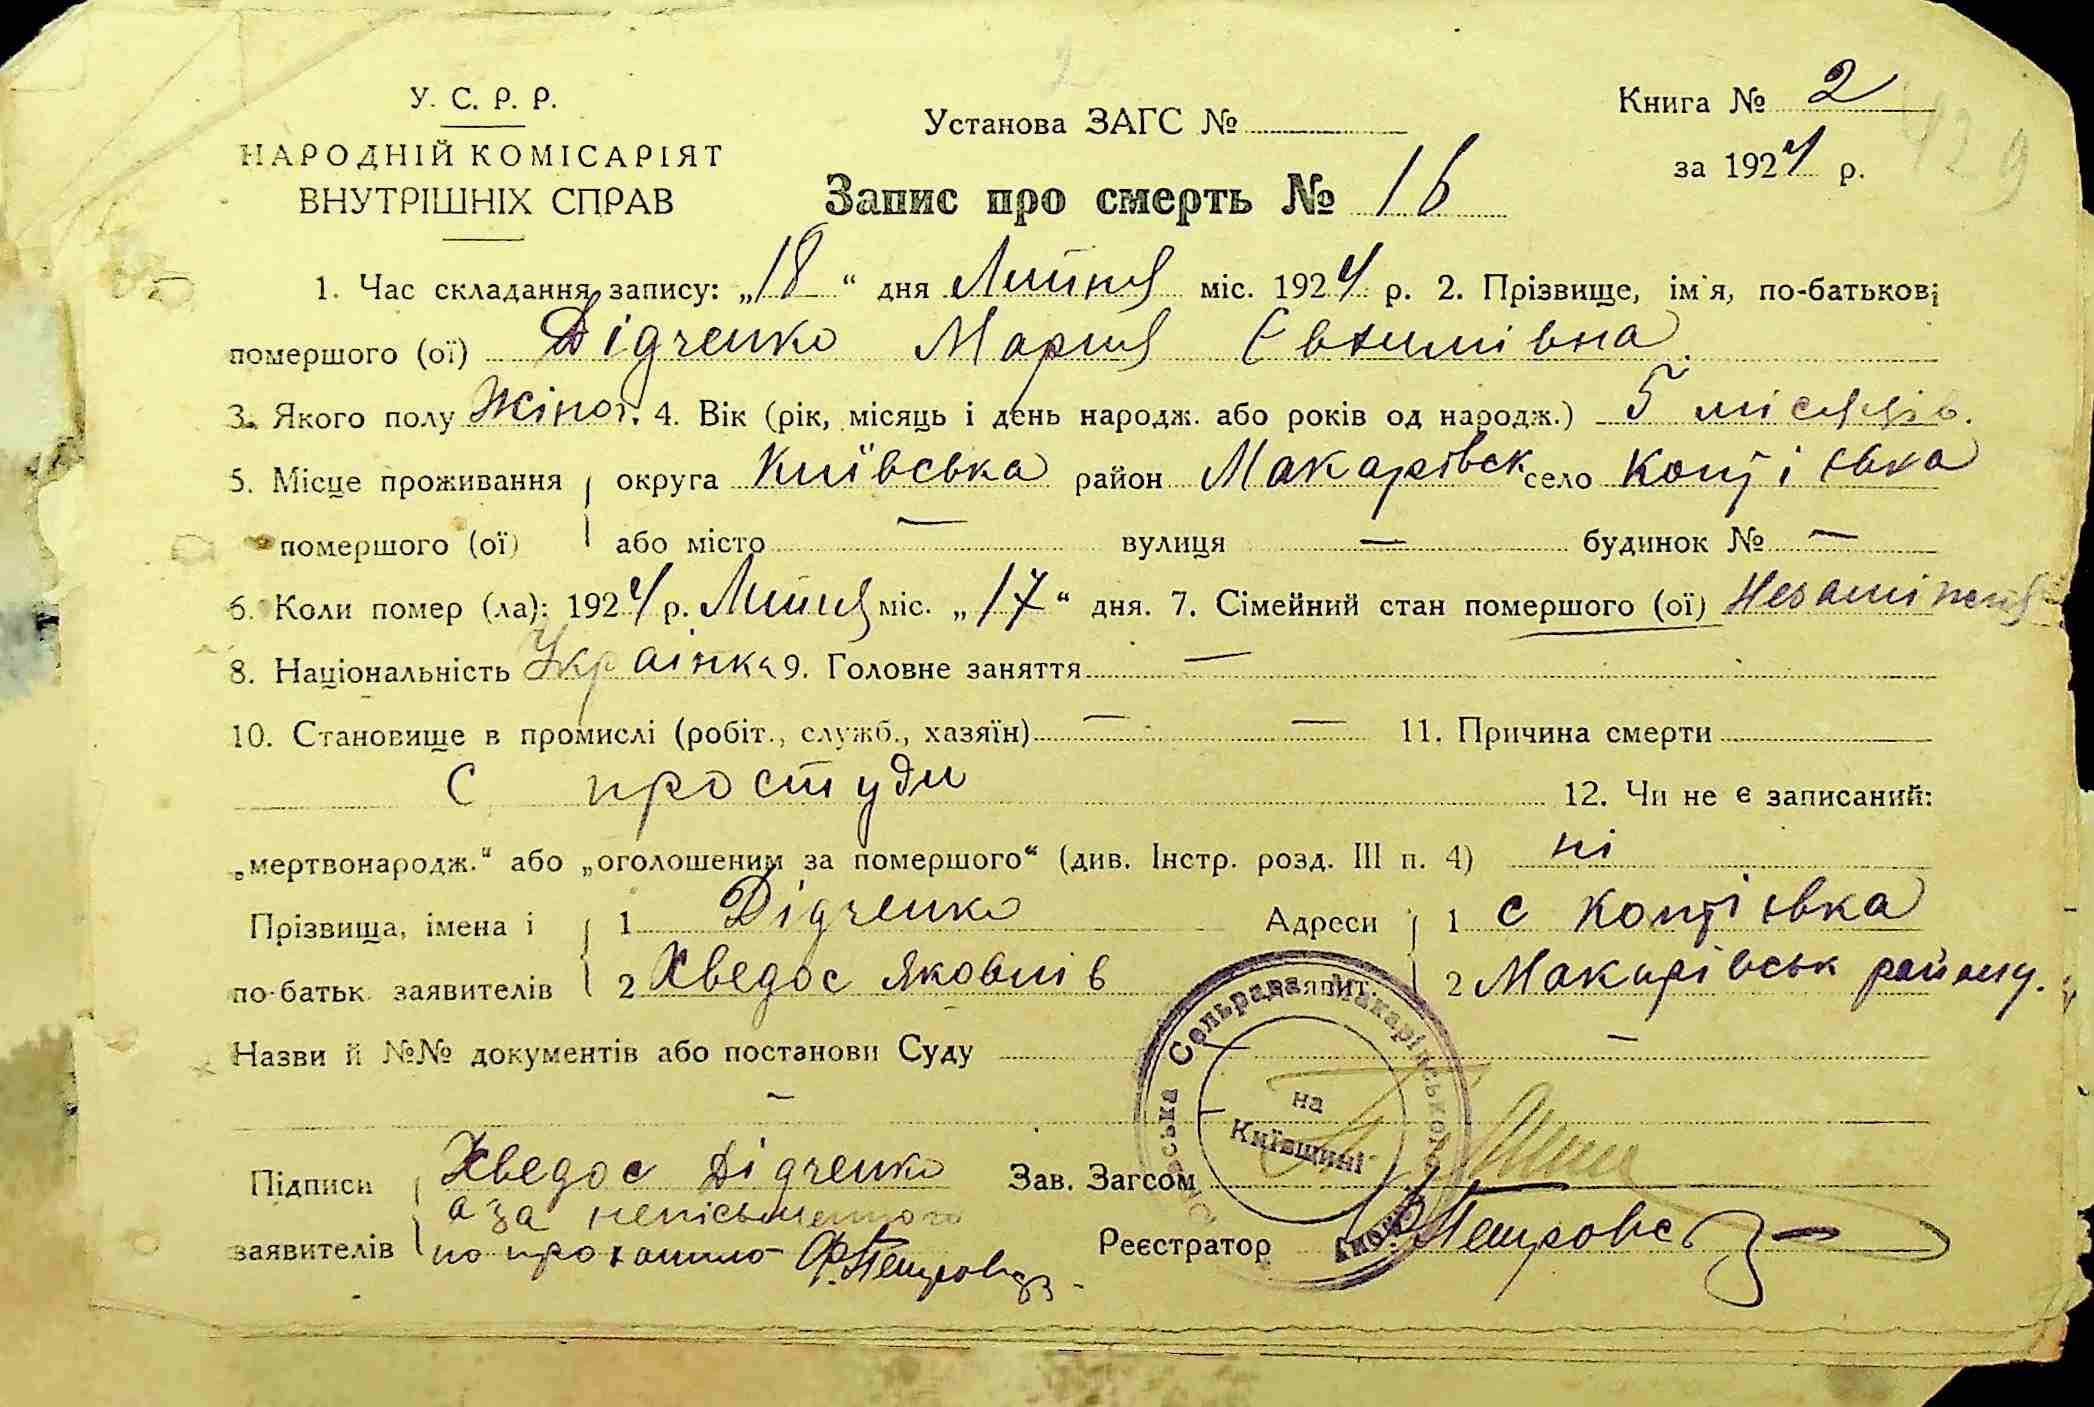 У. С. Р. Р.
НАРОДНІЙ КОМІСАРІЯТ
ВНУТРІШНІХ СПРАВ
Установа ЗАГС №
Книга № 2
за 1924 р.
Запис про смерть № 16
429
1. Час складання запису: „18“ дня Липня міс. 1924 р. 2. Прізвище, ім'я, по-батькові
помершого (ої) Дідченко Мария Євхимівна.
3. Якого полу Жіноч. 4. Вік (рік, місяць і день народж. або років од народж.) 5 місяців.
5. Місце проживання округа Київська район Макарівск село Копіївка
помершого (ої) або місто — вулиця — будинок № —
6. Коли помер (ла): 1924 р. Липня міс. „17“ дня. 7. Сімейний стан помершого (ої) Незаміжня
8. Національність Украінка 9. Головне заняття —
10. Становище в промислі (робіт., служб., хазяїн) — — 11. Причина смерти
С простуди 12. Чи не є записаний:
„мертвонародж.“ або „оголошеним за помершого“ (див. Інстр. розд. III п. 4) ні
Прізвища, імена і 1 Дідченко Адреси 1 с Копіївка
по-батьк. заявителів 2 Хведос Яковлів 2 Макарівськ району.
Назви й №№ документів або постанови Суду —
—
Підписи Хведос Дідченко Зав. Загсом
а за неписьменного
заявителів по проханню Ф. Петровс Реєстратор Ф. Петровс
ська Сельрада Макарівського
на
Київщині